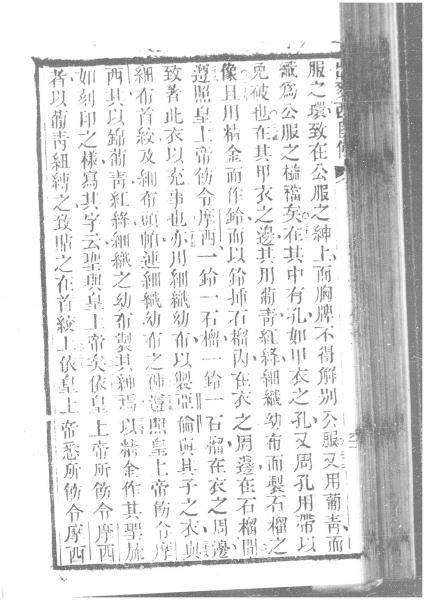 服之環致在公服之紳上而胸牌不得解別公服又用葡青而
織爲公服之襠矣在其中有孔如甲衣之孔又周孔用帶以
免破也在其甲衣之邊其用葡青紅絳細織幼布而製石榴之
像且用精金而作鈴而以鈴揷石榴內在衣之周邊在石榴間
遵照皇上帝飭令摩西一鈴一石榴一鈴一石榴在衣之周邊
致著此衣以充事也亦用細織幼布以製亞倫與其子之衣與
細布首紋及細布頭帕連細織幼布之褲遵照皇上帝飭令摩
西其以錦葡青紅絳細織之幼布製其紳焉以精金作其聖旒
如刻印之樣寫其字云聖與皇上帝矣依皇上帝所飭令摩西
者以葡青紐縛之致貼之在首紋上依皇上帝悉所飭令摩西